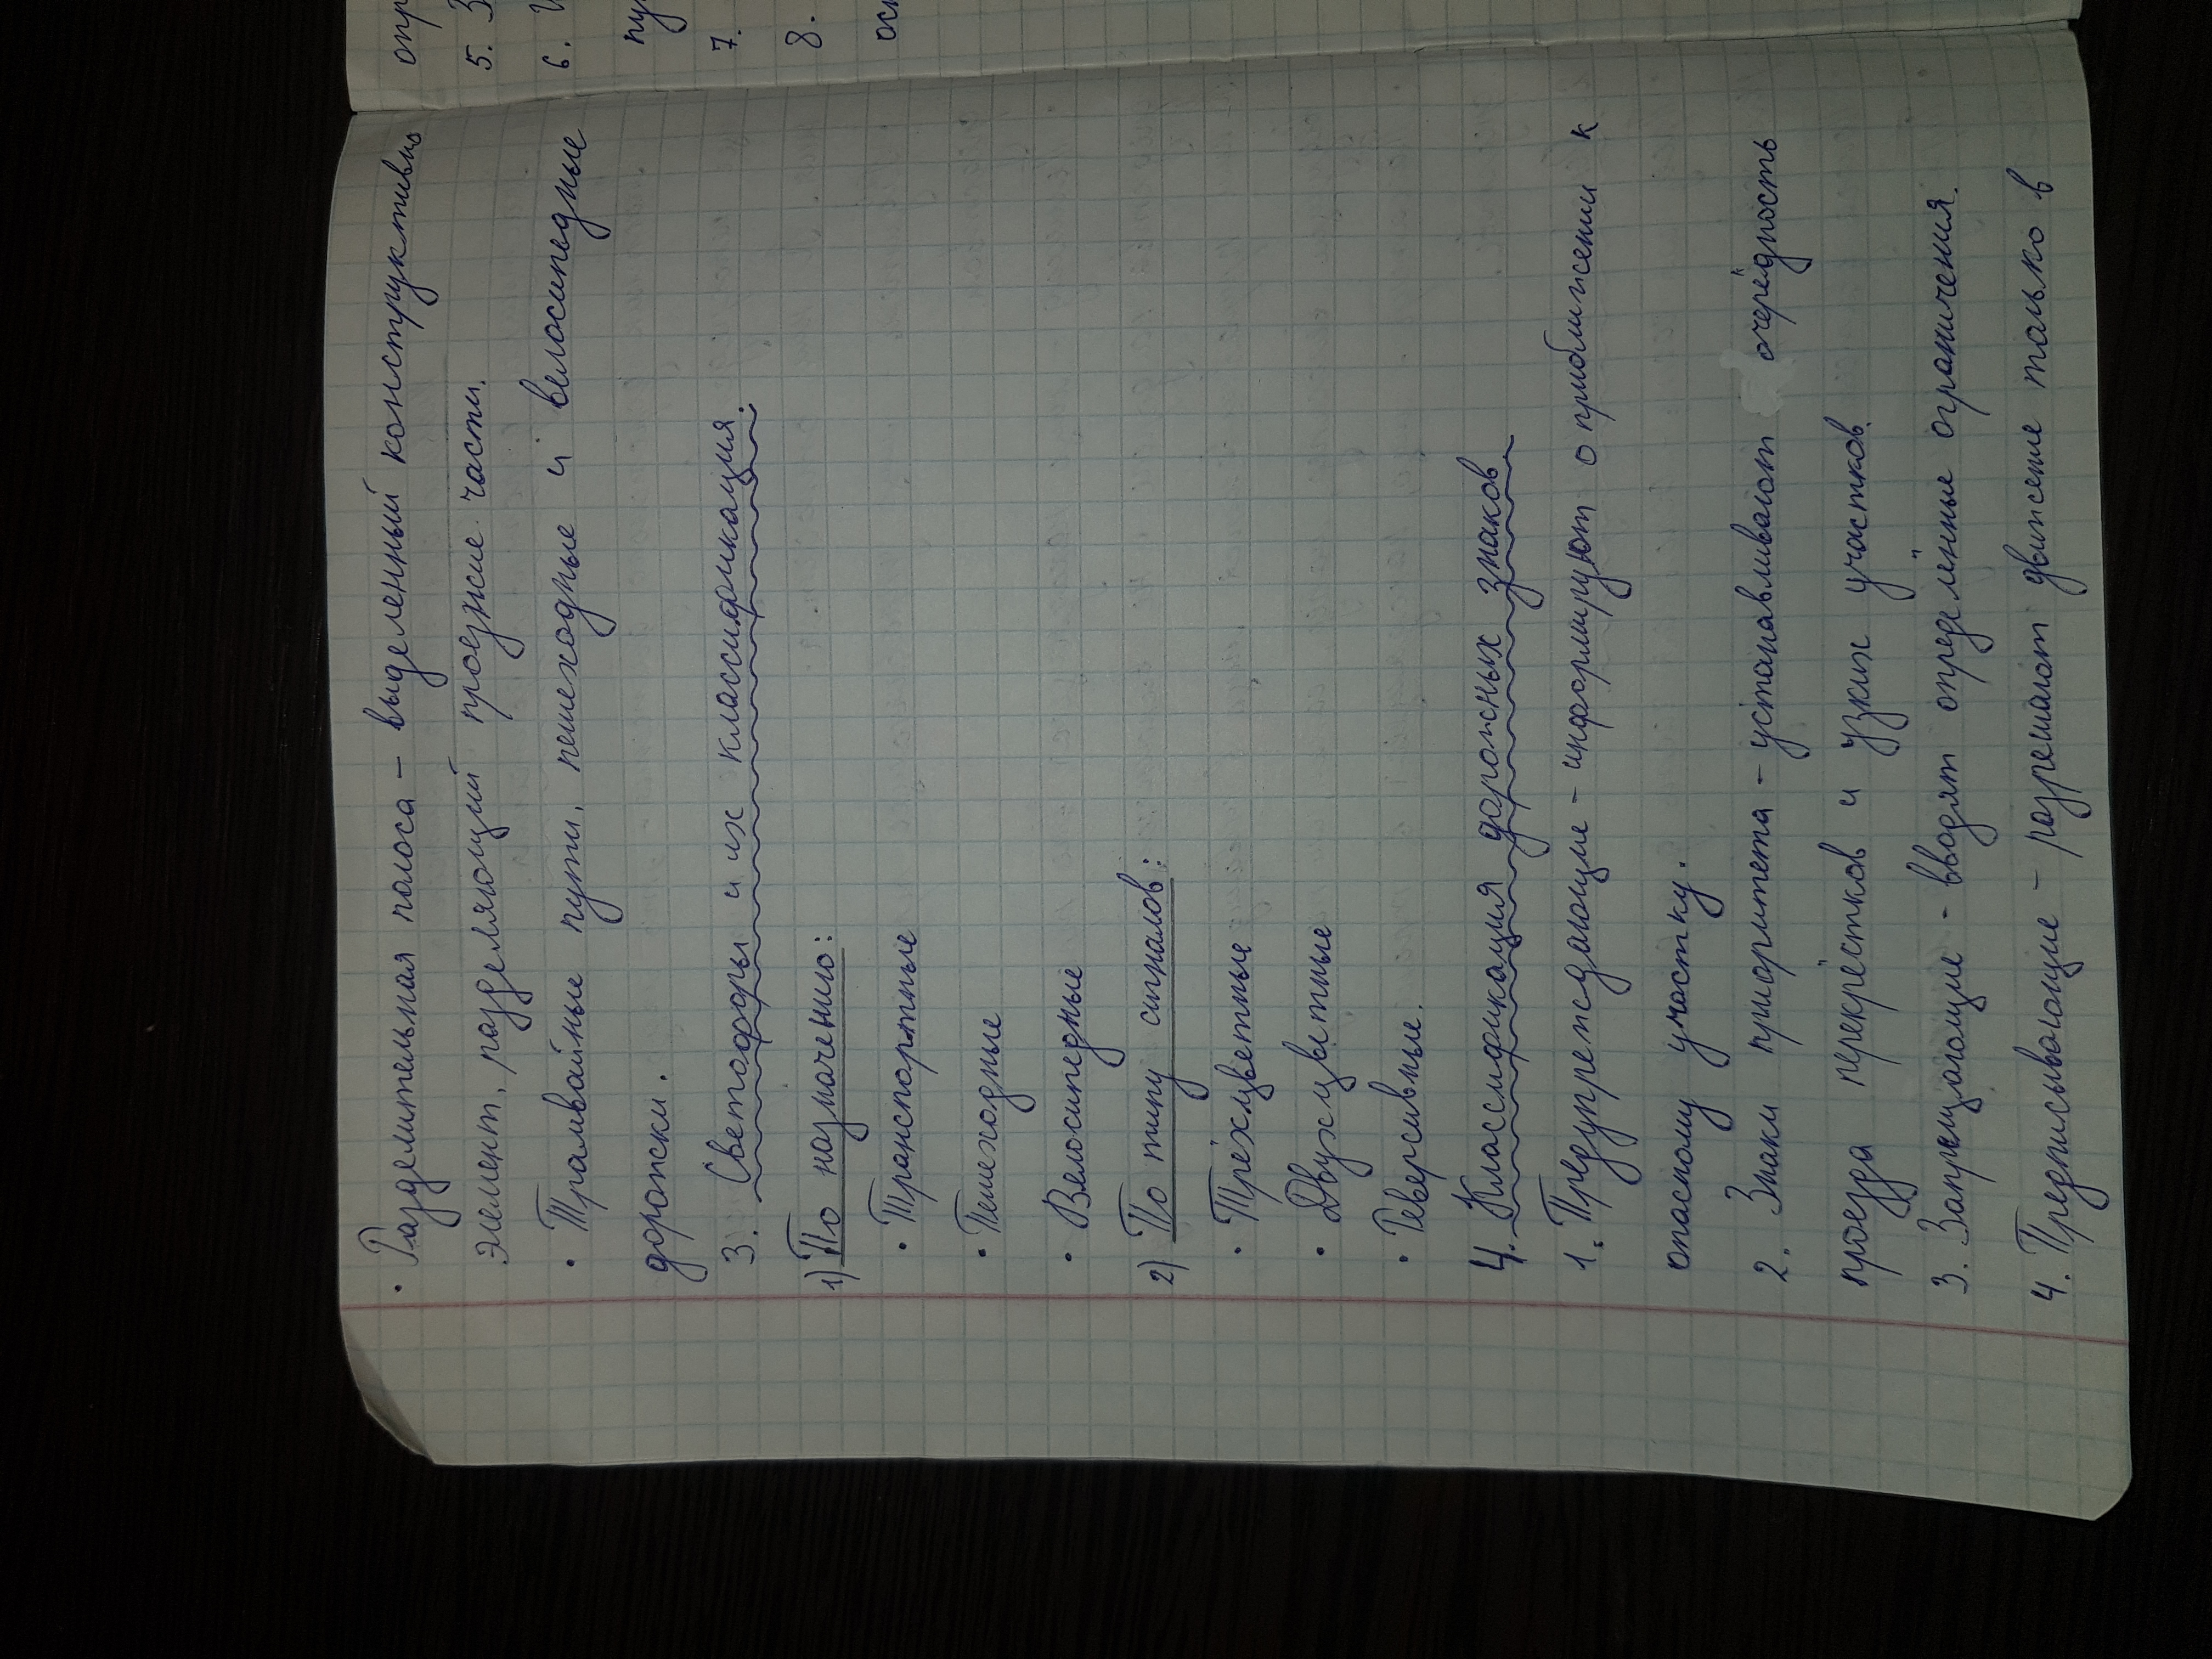 • Разделительная полоса – выделенный конструктивно
элемент, разделяющий проезжие части.
• Трамвайные пути, пешеходные и велосипедные
дорожки.
3. Светофоры и их классификация.
1) По назначению:
• Транспортные
• Пешеходные
• Велосипедные
2) По типу сигналов:
• Трёхцветные
• Двухцветные
• Реверсивные.
4. Классификация дорожных знаков
1. Предупреждающие – информируют о приближении к
опасному участку.
2. Знаки приоритета – устанавливают очерёдность
проезда перекрёстков и узких участков.
3. Запрещающие - вводят определённые ограничения.
4. Предписывающие – разрешают движение только в
опр
5. З
6.
пу
7.
8.
осн